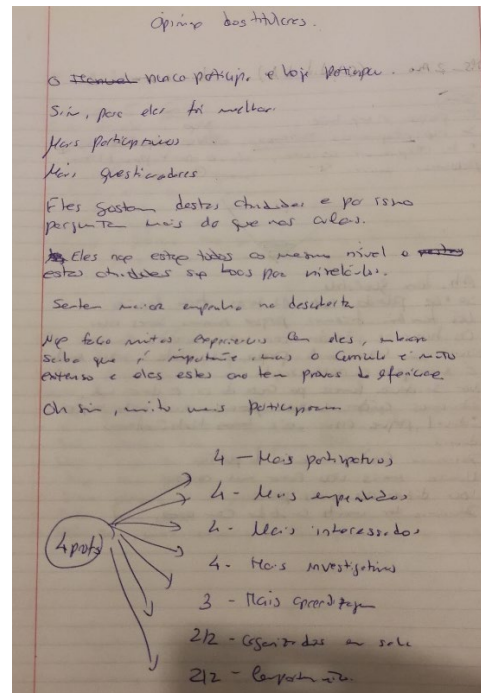 Opinião dos titulares.
O Manuel nunca participa e hoje participou.
Sim, para eles foi melhor.
Mais participativos
Mais questionadores
Eles gostam destas atividades e por isso
perguntam mais do que nas aulas.
Eles não estão todos ao mesmo nível e
estas atividades são boas para nivelá-los.
Sentem maior empenho na descoberta
Não faço muitas experiências com eles, embora
saiba que é importante, mas o currículo é muito
extenso e eles este ano têm provas de aferição
Oh sim, muito mais participaram
4 profs
4 - Mais participativos
4 - Mais empenhados
4 - Mais interessados
4 - Mais investigativos
3 - Mais aprendizagem
2/2 - organizados em sala
2/2 -